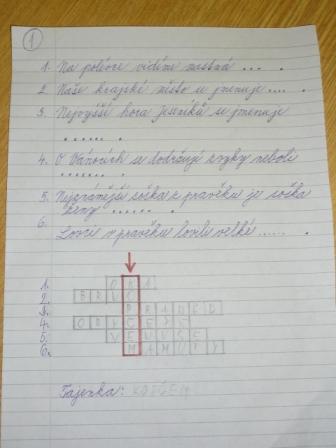 1
1. Na polévce vidíme mastná ... .
2. Naše krajské město se jmenuje .... .
3. Nejvyšší hora Jeseníků se jmenuje
...... .
4. O Vánocích se dodržují zvyky neboli
...... .
5. Nejznámější soška z pravěku je soška
ženy ...... .
6. Lovci v pravěku lovili velké ..... .
1. OKA
2. BRNO
3. PRADĚD
4. OBYČEJE
5. VENUŠE
6. MAMUTY
Tajenka: